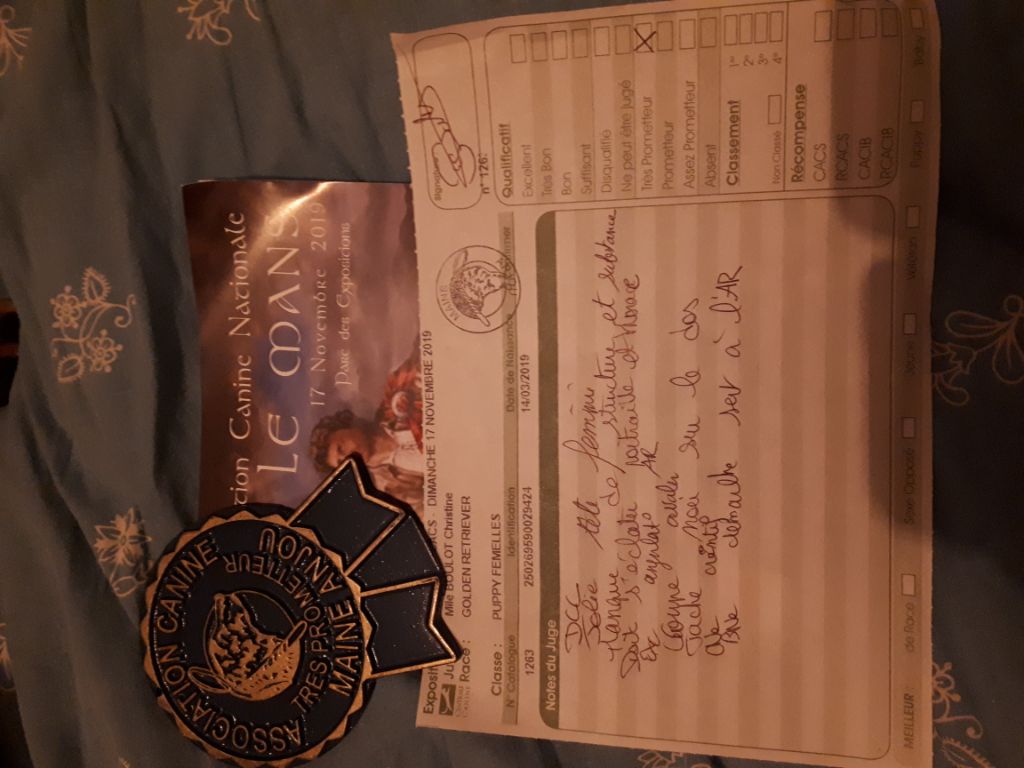 ction Canine Nationale
LE MANS
17 Novembre 2019
Parc des Expositions
ASSOCIATION CANINE
TRES PROMETTEUR
MAINE ANJOU
Exposit CACS - DIMANCHE 17 NOVEMBRE 2019
Ju Mlle BOULOT Christine
Race : GOLDEN RETRIEVER
Classe : PUPPY FEMELLES
N° Catalogue Identification Date de Naissance
1263 250269590029424 14/03/2019
MAINE
Signature
n°126
Notes du Juge
DCC
Jolie tête féminin
Manque de structure et substance
Doit s'éclater poitraille et
Ex angulat° AR
Croupe avalée
Tache noire sur le dos
démarche ser à l'AR
Qualificatif
Excellent
Très Bon
Bon
Suffisant
Disqualifié
Ne peut être jugé
Très Prometteur X
Prometteur
Assez Prometteur
Absent
Classement
1er
2e
3e
4e
Non Classé
Récompense
CACS
RCACS
CACIB
RCACIB
MEILLEUR : de Race Sexe Opposé Jeune Vétéran Puppy Baby